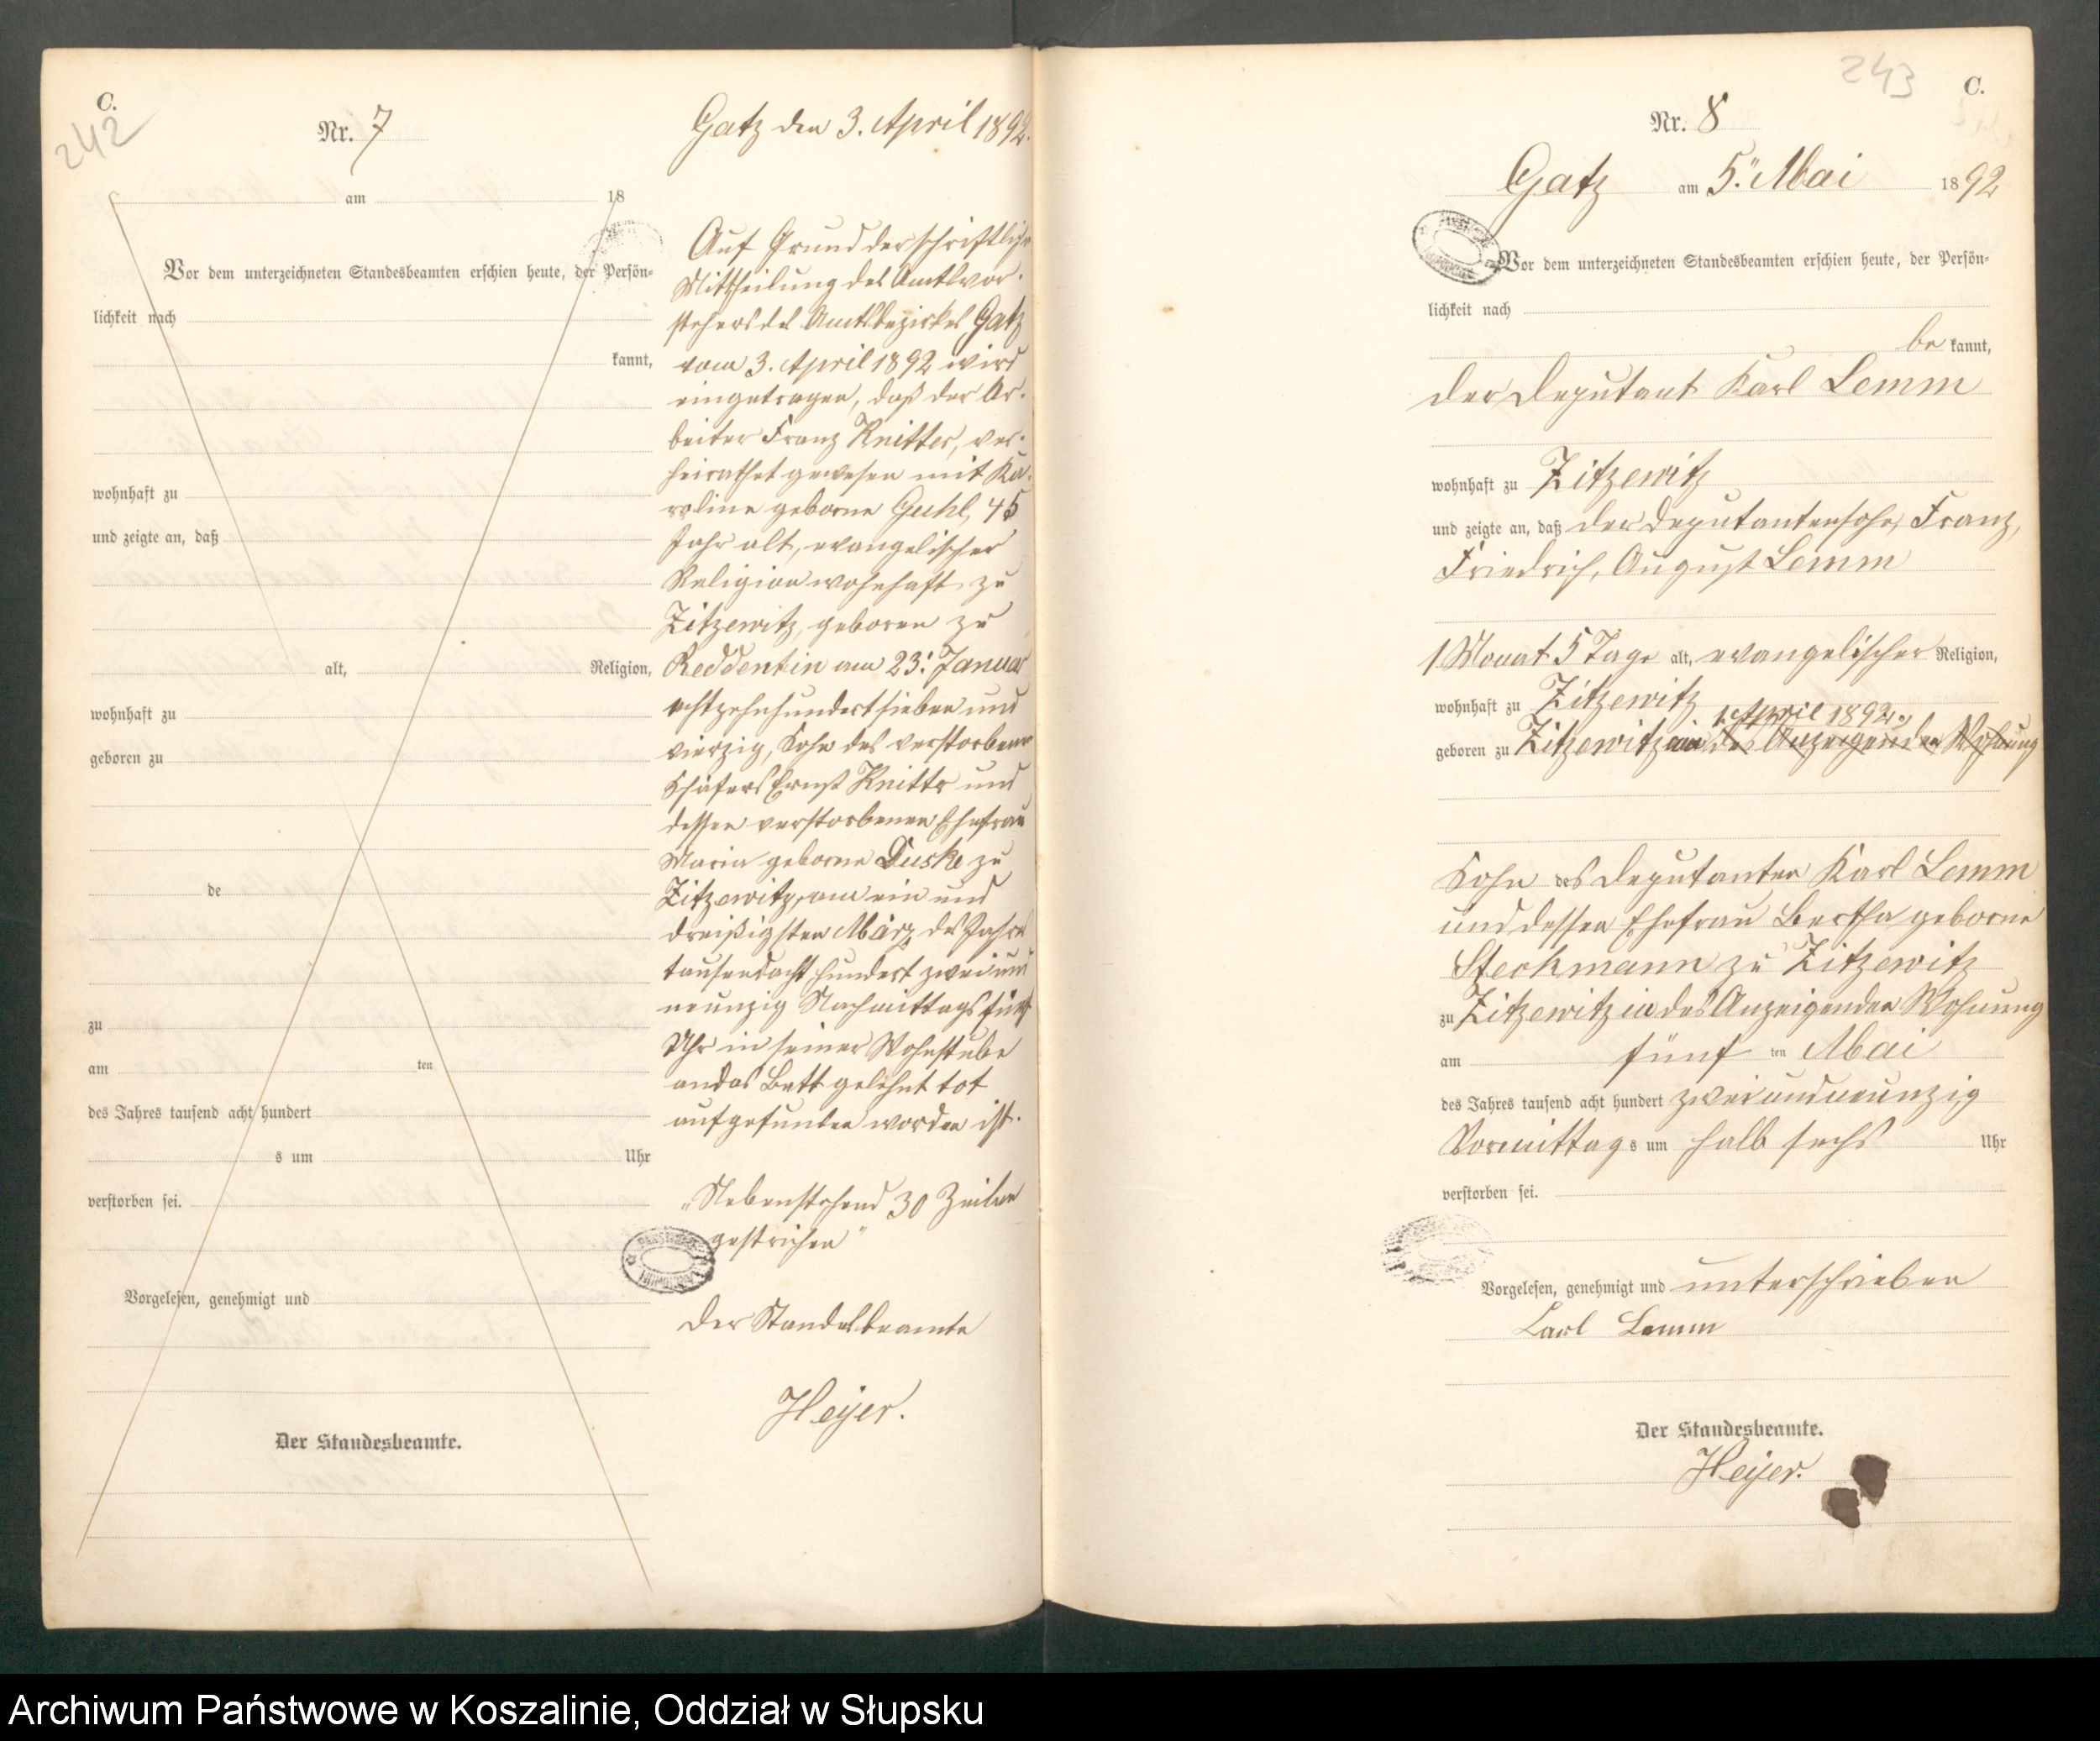 C.
242
Nr. 7
am 18
Vor dem unterzeichneten Standesbeamten erschien heute, der Persön-
lichkeit nach
kannt,
wohnhaft zu
und zeigte an, daß
alt, Religion,
wohnhaft zu
geboren zu
de
zu
am ten
des Jahres tausend acht hundert
s um Uhr
verstorben sei.
Vorgelesen, genehmigt und
Der Standesbeamte.
Gatz den 3. April 1892.
Auf Grund der schriftlichen
Mittheilung des Amtsvor-
stehers des Amtsbezirkes Gatz
vom 3. April 1892 wird
eingetragen, daß der Ar-
beiter Franz Knitter, ver-
heirathet gewesen mit Ka-
roline geborne Guhl, 45
Jahr alt, evangelischer
Religion wohnhaft zu
Zitzewitz, geboren zu
Reddentin am 23. Januar
achtzehnhundertsieben und
vierzig, Sohn des verstorbenen
Schäfers Ernst Knitter und
dessen verstorbenen Ehefrau
Maria geborne Duske zu
Zitzewitz, am ein und
dreißigsten März des Jahres
tausendacht hundert zwei und
neunzig Nachmittags fünf
Uhr in seiner Wohnstube
an das Bett gelehnt tot
aufgefunden worden ist.
„Nebenstehend 30 Zeilen
gestrichen"
Der Standesbeamte
Heyer.
243
C.
Nr. 8
Gatz am 5. Mai 1892
Vor dem unterzeichneten Standesbeamten erschien heute, der Persön-
lichkeit nach
be kannt,
der Deputant Karl Lemm
wohnhaft zu Zitzewitz
und zeigte an, daß der Deputantensohn, Franz,
Friedrich, August Lemm
1 Monat 5 Tage alt, evangelischer Religion,
wohnhaft zu Zitzewitz
1. April 1892.
geboren zu Zitzewitz in des Anzeigenden Wohnung
Sohn des Deputanten Karl Lemm
und dessen Ehefrau Bertha geborne
Steckmann zu Zitzewitz
zu Zitzewitz in des Anzeigenden Wohnung
am fünf ten Mai
des Jahres tausend acht hundert zweiundneunzig
Vormittag s um halb sechs Uhr
verstorben sei.
Vorgelesen, genehmigt und unterschrieben
Carl Lemm
Der Standesbeamte.
Heyer.
Archiwum Państwowe w Koszalinie, Oddział w Słupsku